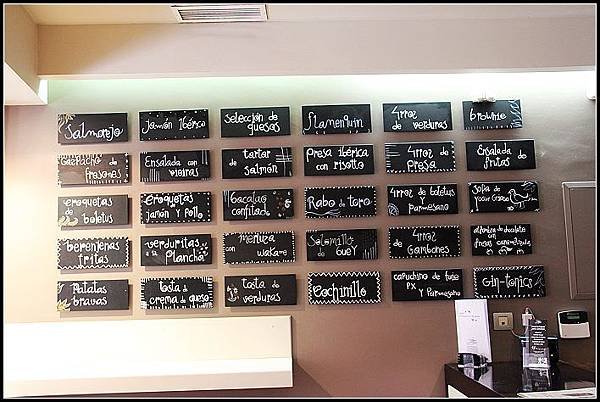 Salmorejo
Jamón Ibérico
selección de
quesos
flamenquin
Arroz
de verduras
brownie
Gazpacho de
fresones
Ensalada con
vieiras
tartar
de salmón
presa ibérica
con risotto
Arroz de
presa
Ensalada de
frutas
croquetas
de boletus
croquetas
jamón y pollo
Bacalao
confitado
Rabo de toro
Arroz de boletus y
parmesano
sopa de
berenjenas
fritas
verduritas a
la plancha
merluza
con
Solomillo
de buey
Arroz
de Gambones
de chocolate
con
Patatas
bravas
tosta de
crema de queso
tosta de
verduras
Cochinillo
capuchino de
PX
y Parmesano
Gin-tonics